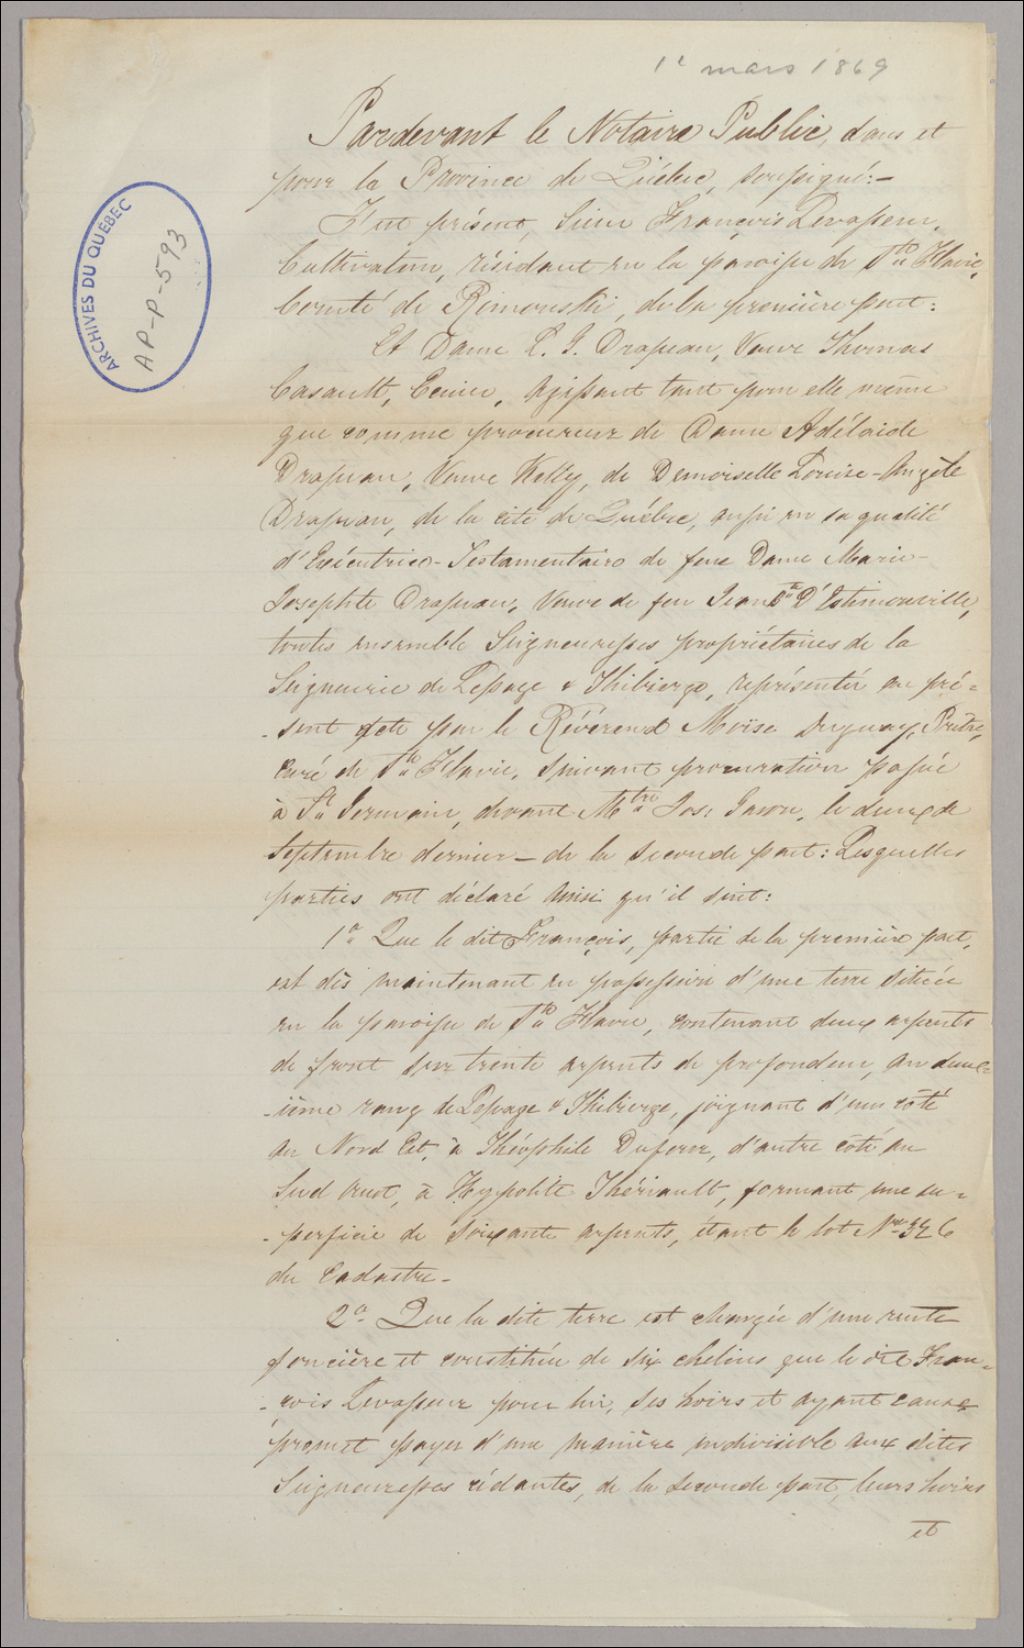 1r mars 1869
ARCHIVES DU QUÉBEC
AP-P-593
Pardevant le Notaire Public, dans et
pour la Province de Québec, soussigné:—
Fut présent, Sieur François Levasseur,
Cultivateur, résidant en la paroisse de Ste Flavie,
Comté de Rimouski, de la première part:
Et Dame L. J. Drapeau, Veuve Thomas
Casault, Ecuier, agissant tant pour elle même
que comme procureur de Dame Adélaide
Drapeau, Veuve Kelly, de Demoiselle Louise-Angèle
Drapeau, de la cité de Québec, aussi en sa qualité
d'Exécutrice-Testamentaire de feue Dame Marie-
Josephte Drapeau, Veuve de feu Jean Bte D'Estimauville,
toutes ensemble Seigneuresses propriétaires de la
Seigneurie de Lepage & Thibierge, représentée au pré-
-sent acte par le Révérend Moïse Duguay, Prêtre,
Curé de Ste Flavie, suivant procuration passée
à St Germain, devant Mtre Jos: Garon, le deux de
Septembre dernier — de la seconde part: Lesquelles
parties ont déclaré ainsi qu'il suit:
1o Que le dit François, partie de la première part,
est dès maintenant en possession d'une terre située
en la paroisse de Ste Flavie, contenant deux arpents
de front sur trente arpents de profondeur, au deux-
-ième rang de Lepage & Thibierge, joignant d'un côté
au Nord Est, à Théophile Duforr, d'autre côté au
Sud Ouest, à Hypolite Thériault, formant une su-
-perficie de soixante arpents, étant le lot No 326
du Cadastre—
2o Que la dite terre est chargée d'une rente
foncière et constituée de six chelins que le dit Fran-
-çois Levasseur pour lui, ses hoirs et ayant cause
promet payer d'une manière indivisible aux dites
Seigneuresses cédantes, de la seconde part, leurs hoirs
et